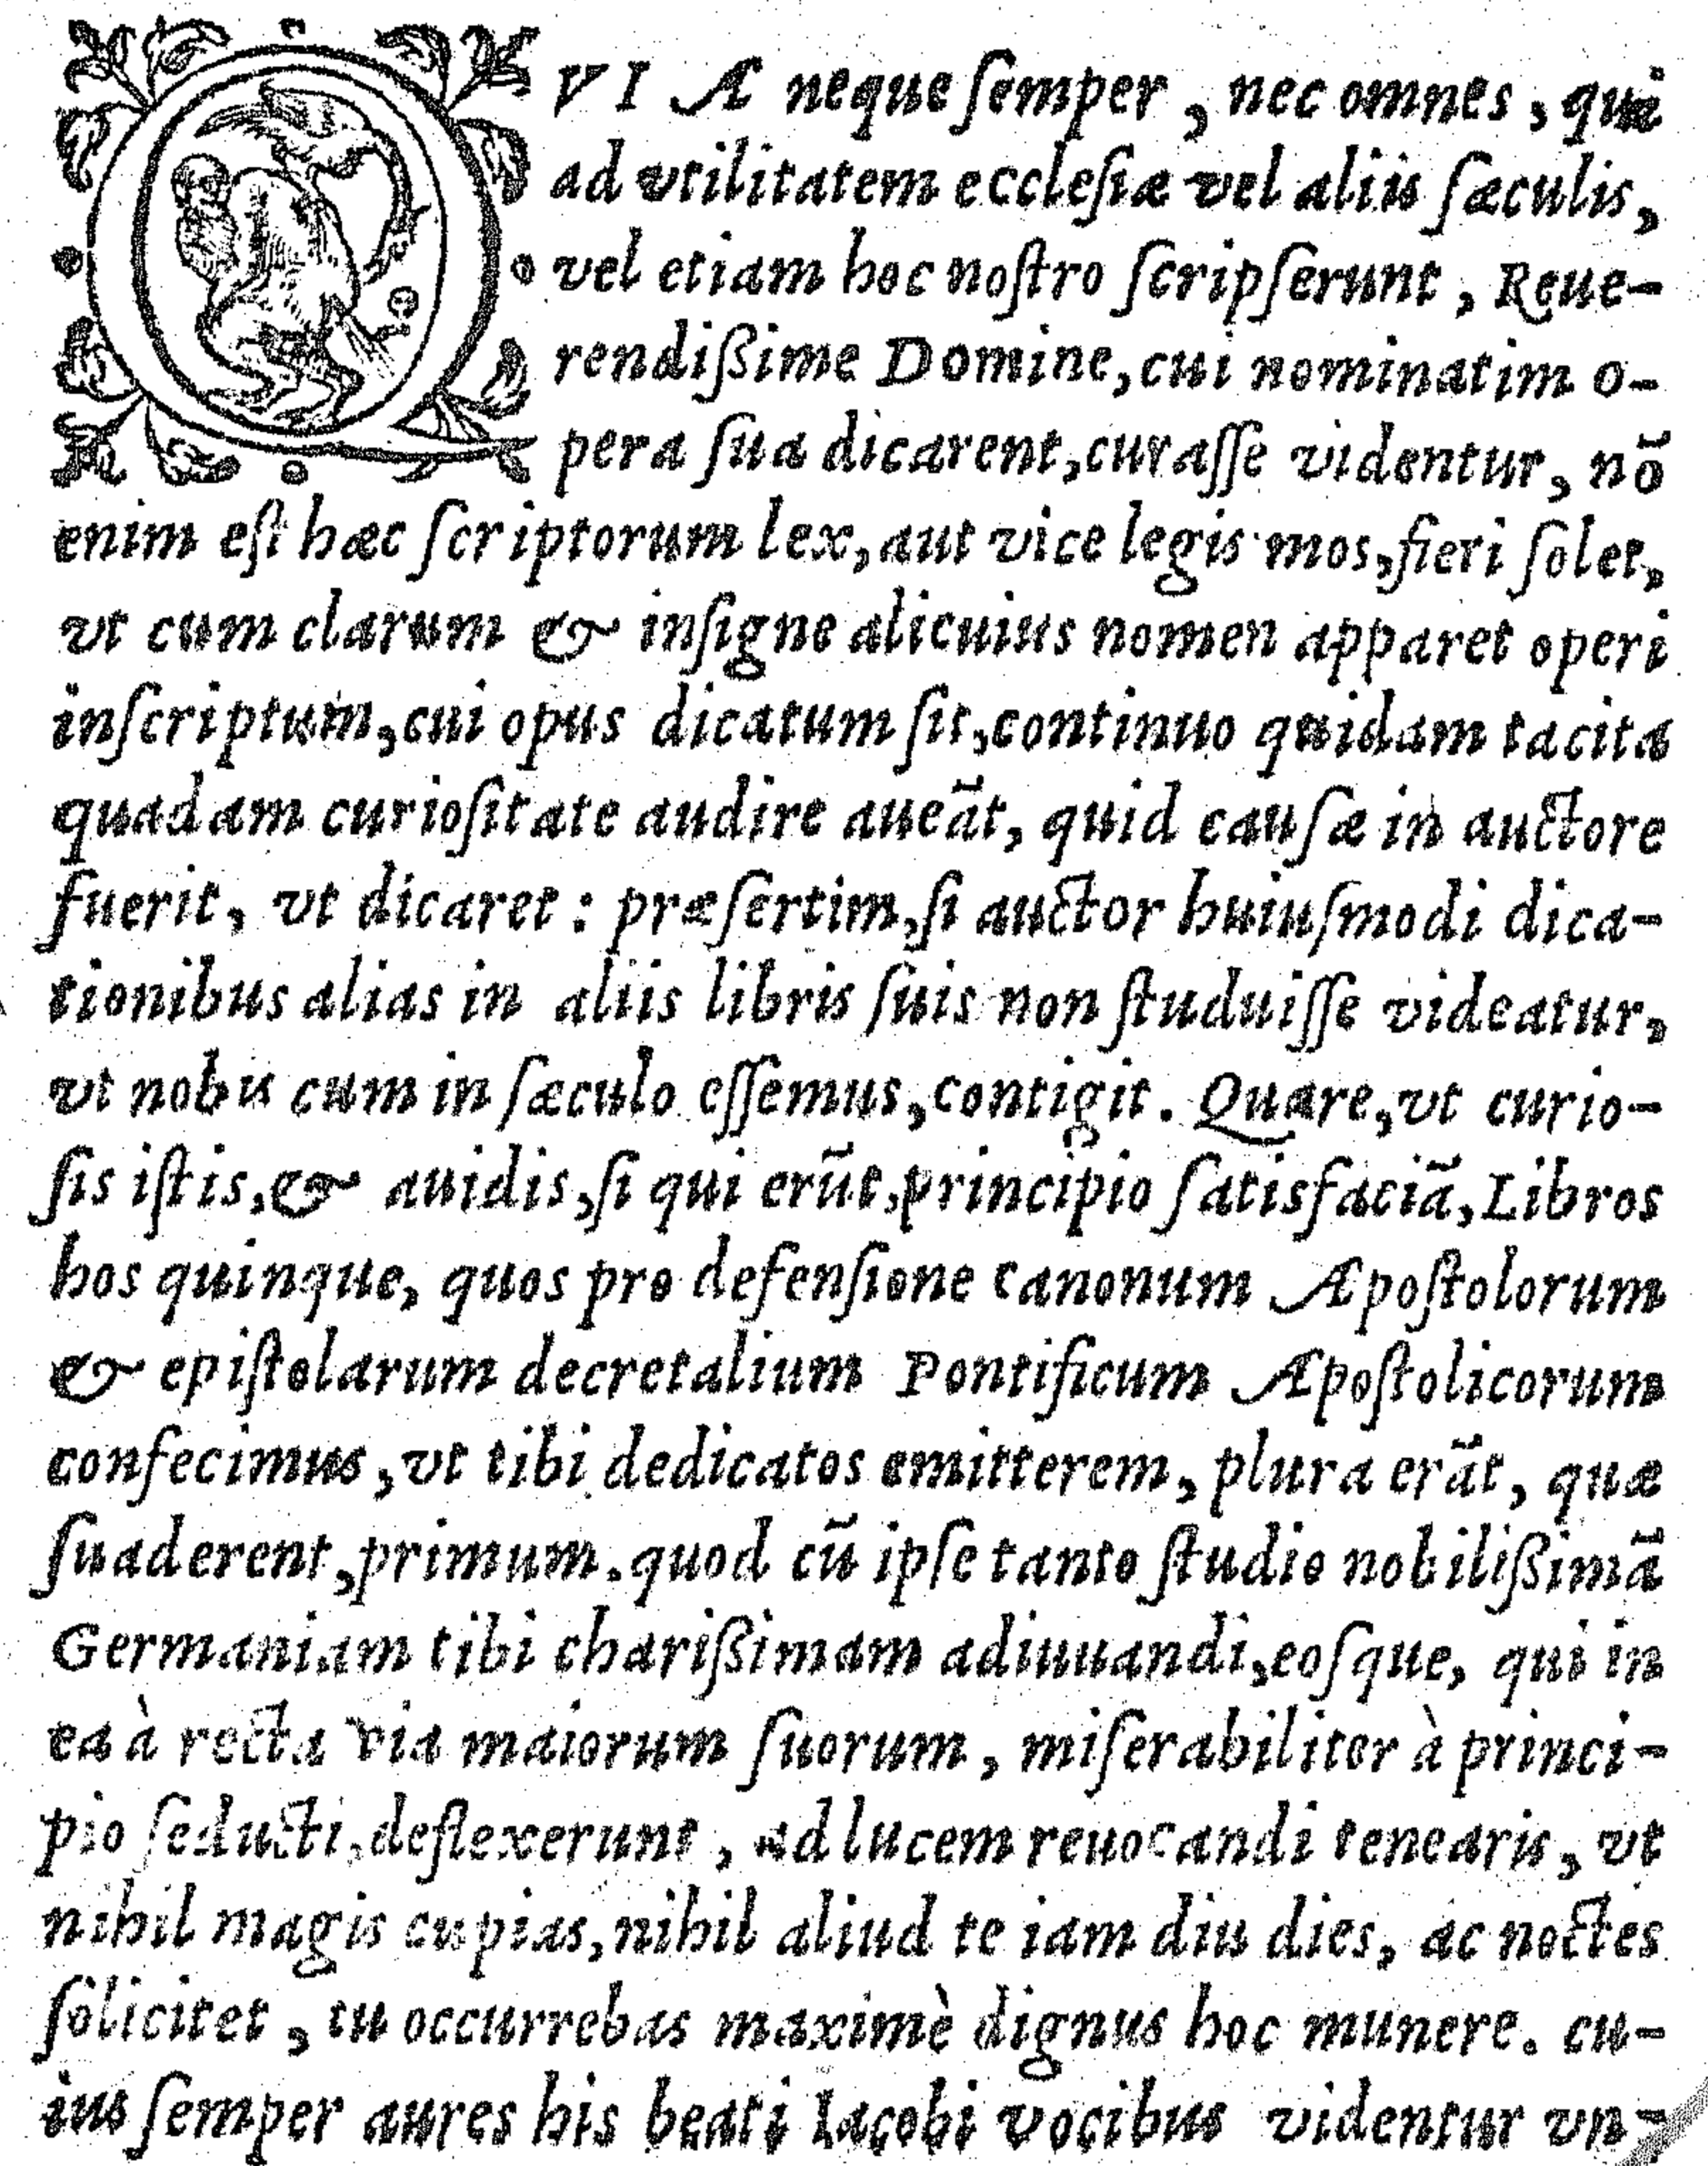 QVIA neque ſemper, nec omnes, qui
ad vtilitatem eccleſiæ vel aliis ſæculis,
vel etiam hoc noſtro ſcripſerunt, Reue-
rendißime Domine, cui nominatim o-
pera ſua dicarent, curaſſe videntur, nō
enim eſt hæc ſcriptorum lex, aut vice legis mos, fieri ſolet,
vt cum clarum & inſigne alicuius nomen apparet operi
inſcriptum, cui opus dicatum ſit, continuo quidam tacita
quadam curioſitate audire aueāt, quid cauſæ in auctore
fuerit, vt dicaret: præſertim, ſi auctor huiuſmodi dica-
tionibus alias in aliis libris ſuis non ſtuduiſſe videatur,
vt nobis cum in ſæculo eſſemus, contigit. Quare, vt curio-
ſis iſtis, & auidis, ſi qui erūt, principio ſatisfaciā, Libros
hos quinque, quos pro defenſione canonum Apoſtolorum
& epiſtolarum decretalium Pontificum Apoſtolicorum
confecimus, vt tibi dedicatos emitterem, plura erāt, quæ
ſuaderent, primum. quod cū ipſe tanto ſtudio nobilißimā
Germaniam tibi charißimam adiuuandi, eoſque, qui in
ea à recta via maiorum ſuorum, miſerabiliter à princi-
pio ſeducti, deflexerunt, ad lucem reuocandi tenearis, vt
nihil magis cupias, nihil aliud te iam diu dies, ac noctes
ſolicitet, tu occurrebas maximè dignus hoc munere. cu-
ius ſemper aures his beati Iacobi vocibus videntur vn-